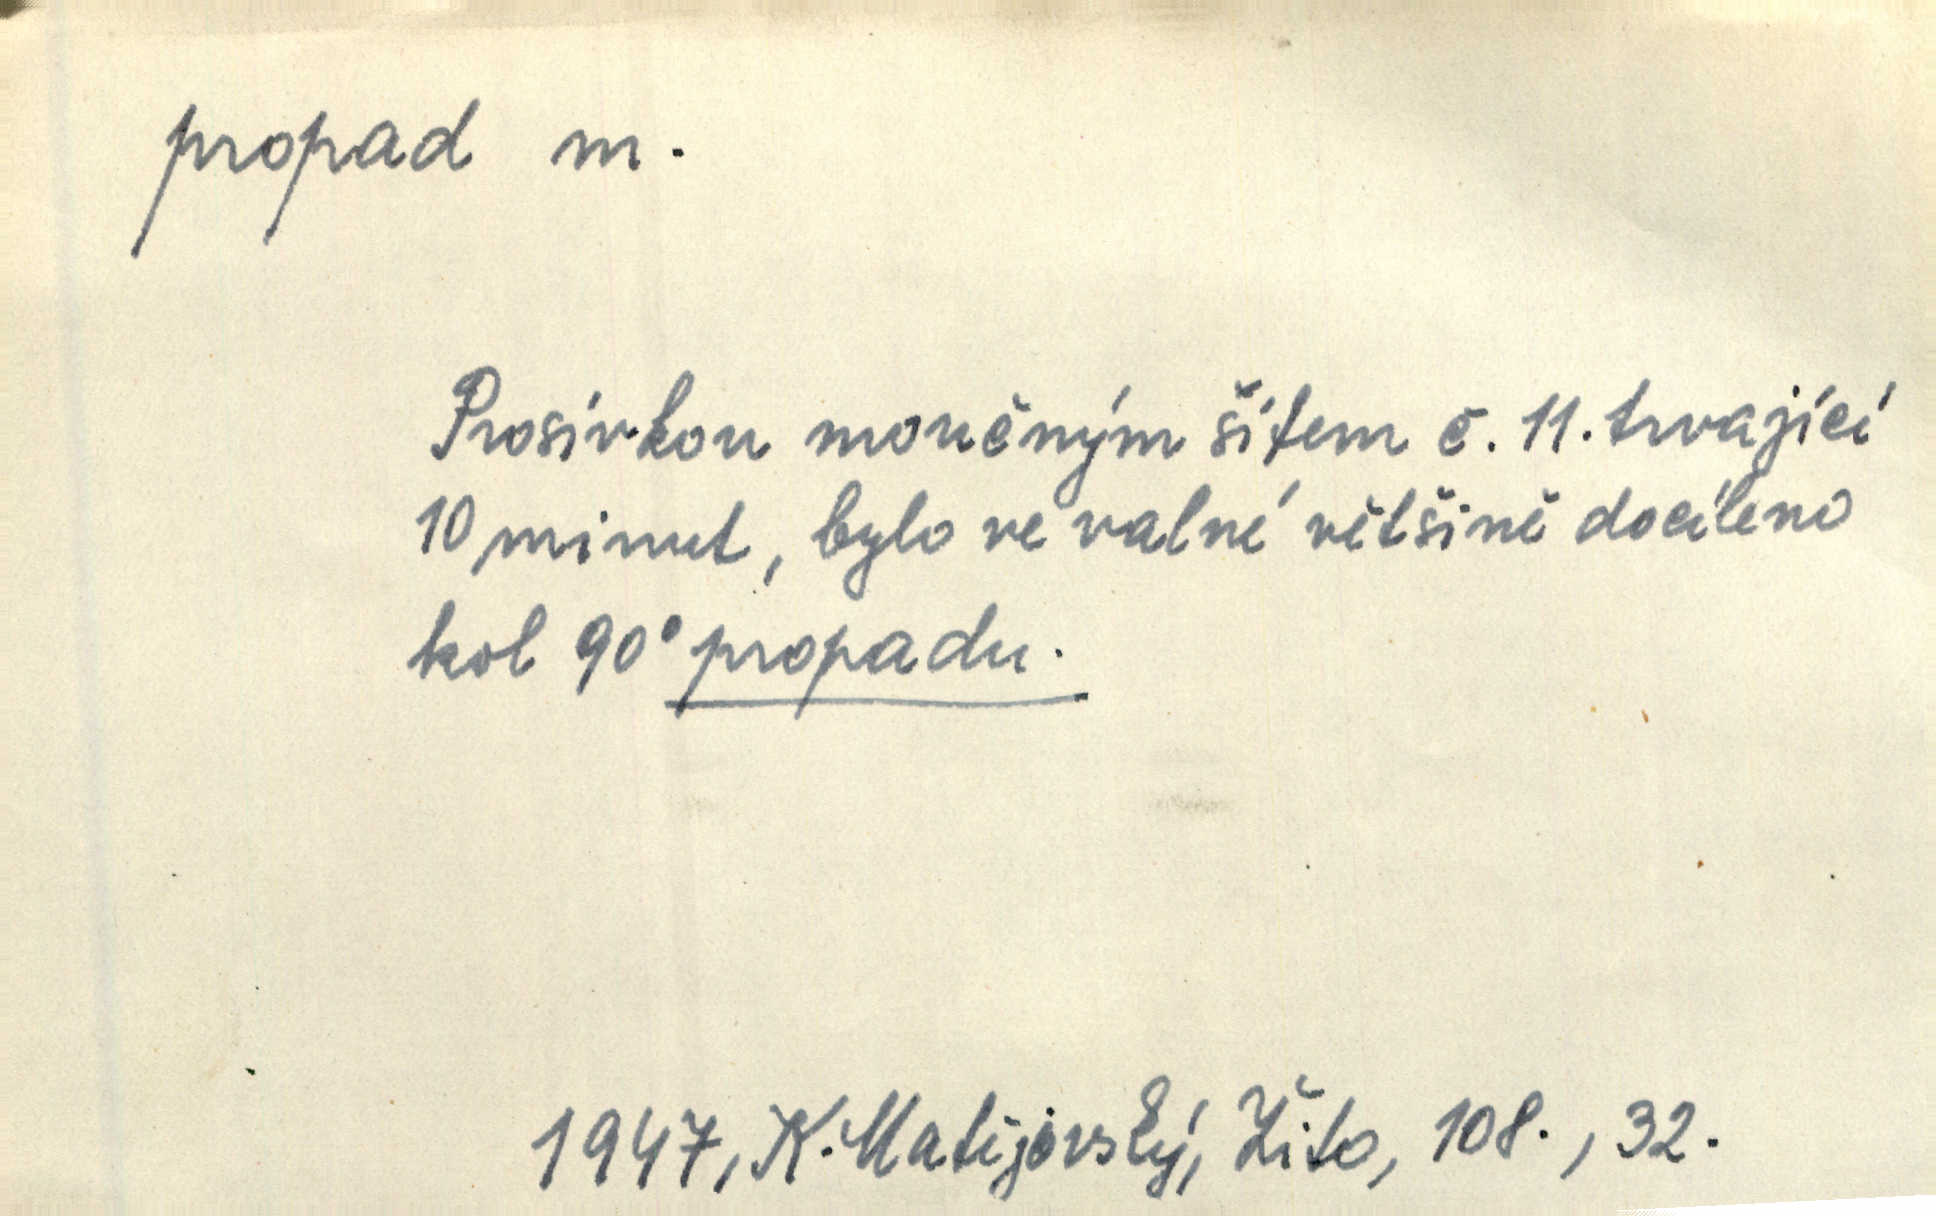 propad m.
Prosívkou moučným šítem č. 11. trvající
10 minut, bylo ve valné většině docíleno
kol 90° propadu.
1947, K. Matějovský, Žito, 108., 32.